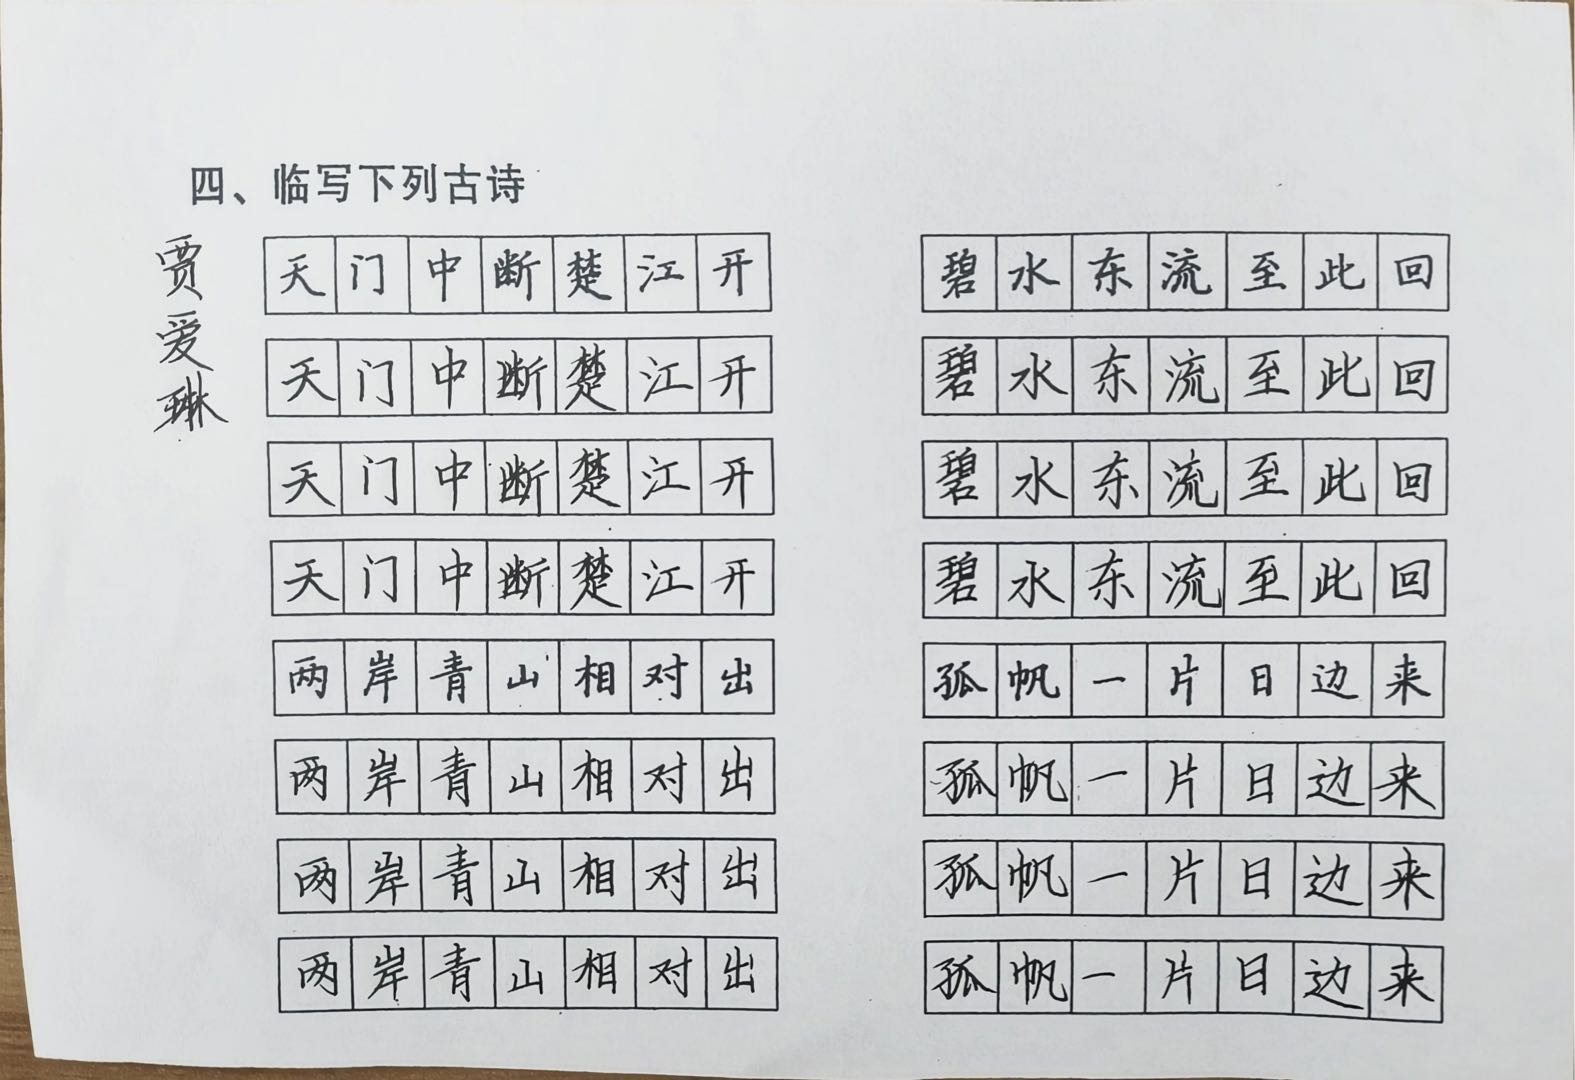 四、临写下列古诗
贾爱琳
天门中断楚江开
天门中断楚江开
天门中断楚江开
天门中断楚江开
两岸青山相对出
两岸青山相对出
两岸青山相对出
两岸青山相对出
碧水东流至此回
碧水东流至此回
碧水东流至此回
碧水东流至此回
孤帆一片日边来
孤帆一片日边来
孤帆一片日边来
孤帆一片日边来